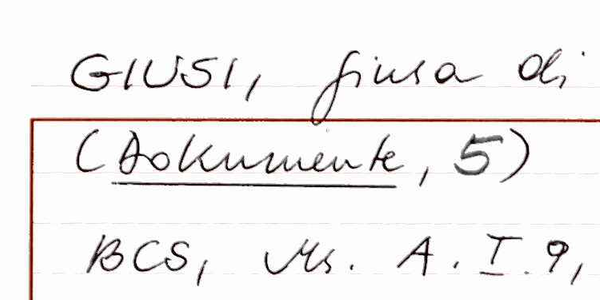 GIUSI, giusa di
(Dokumente, 5)
BCS, Ms. A. I. 9,